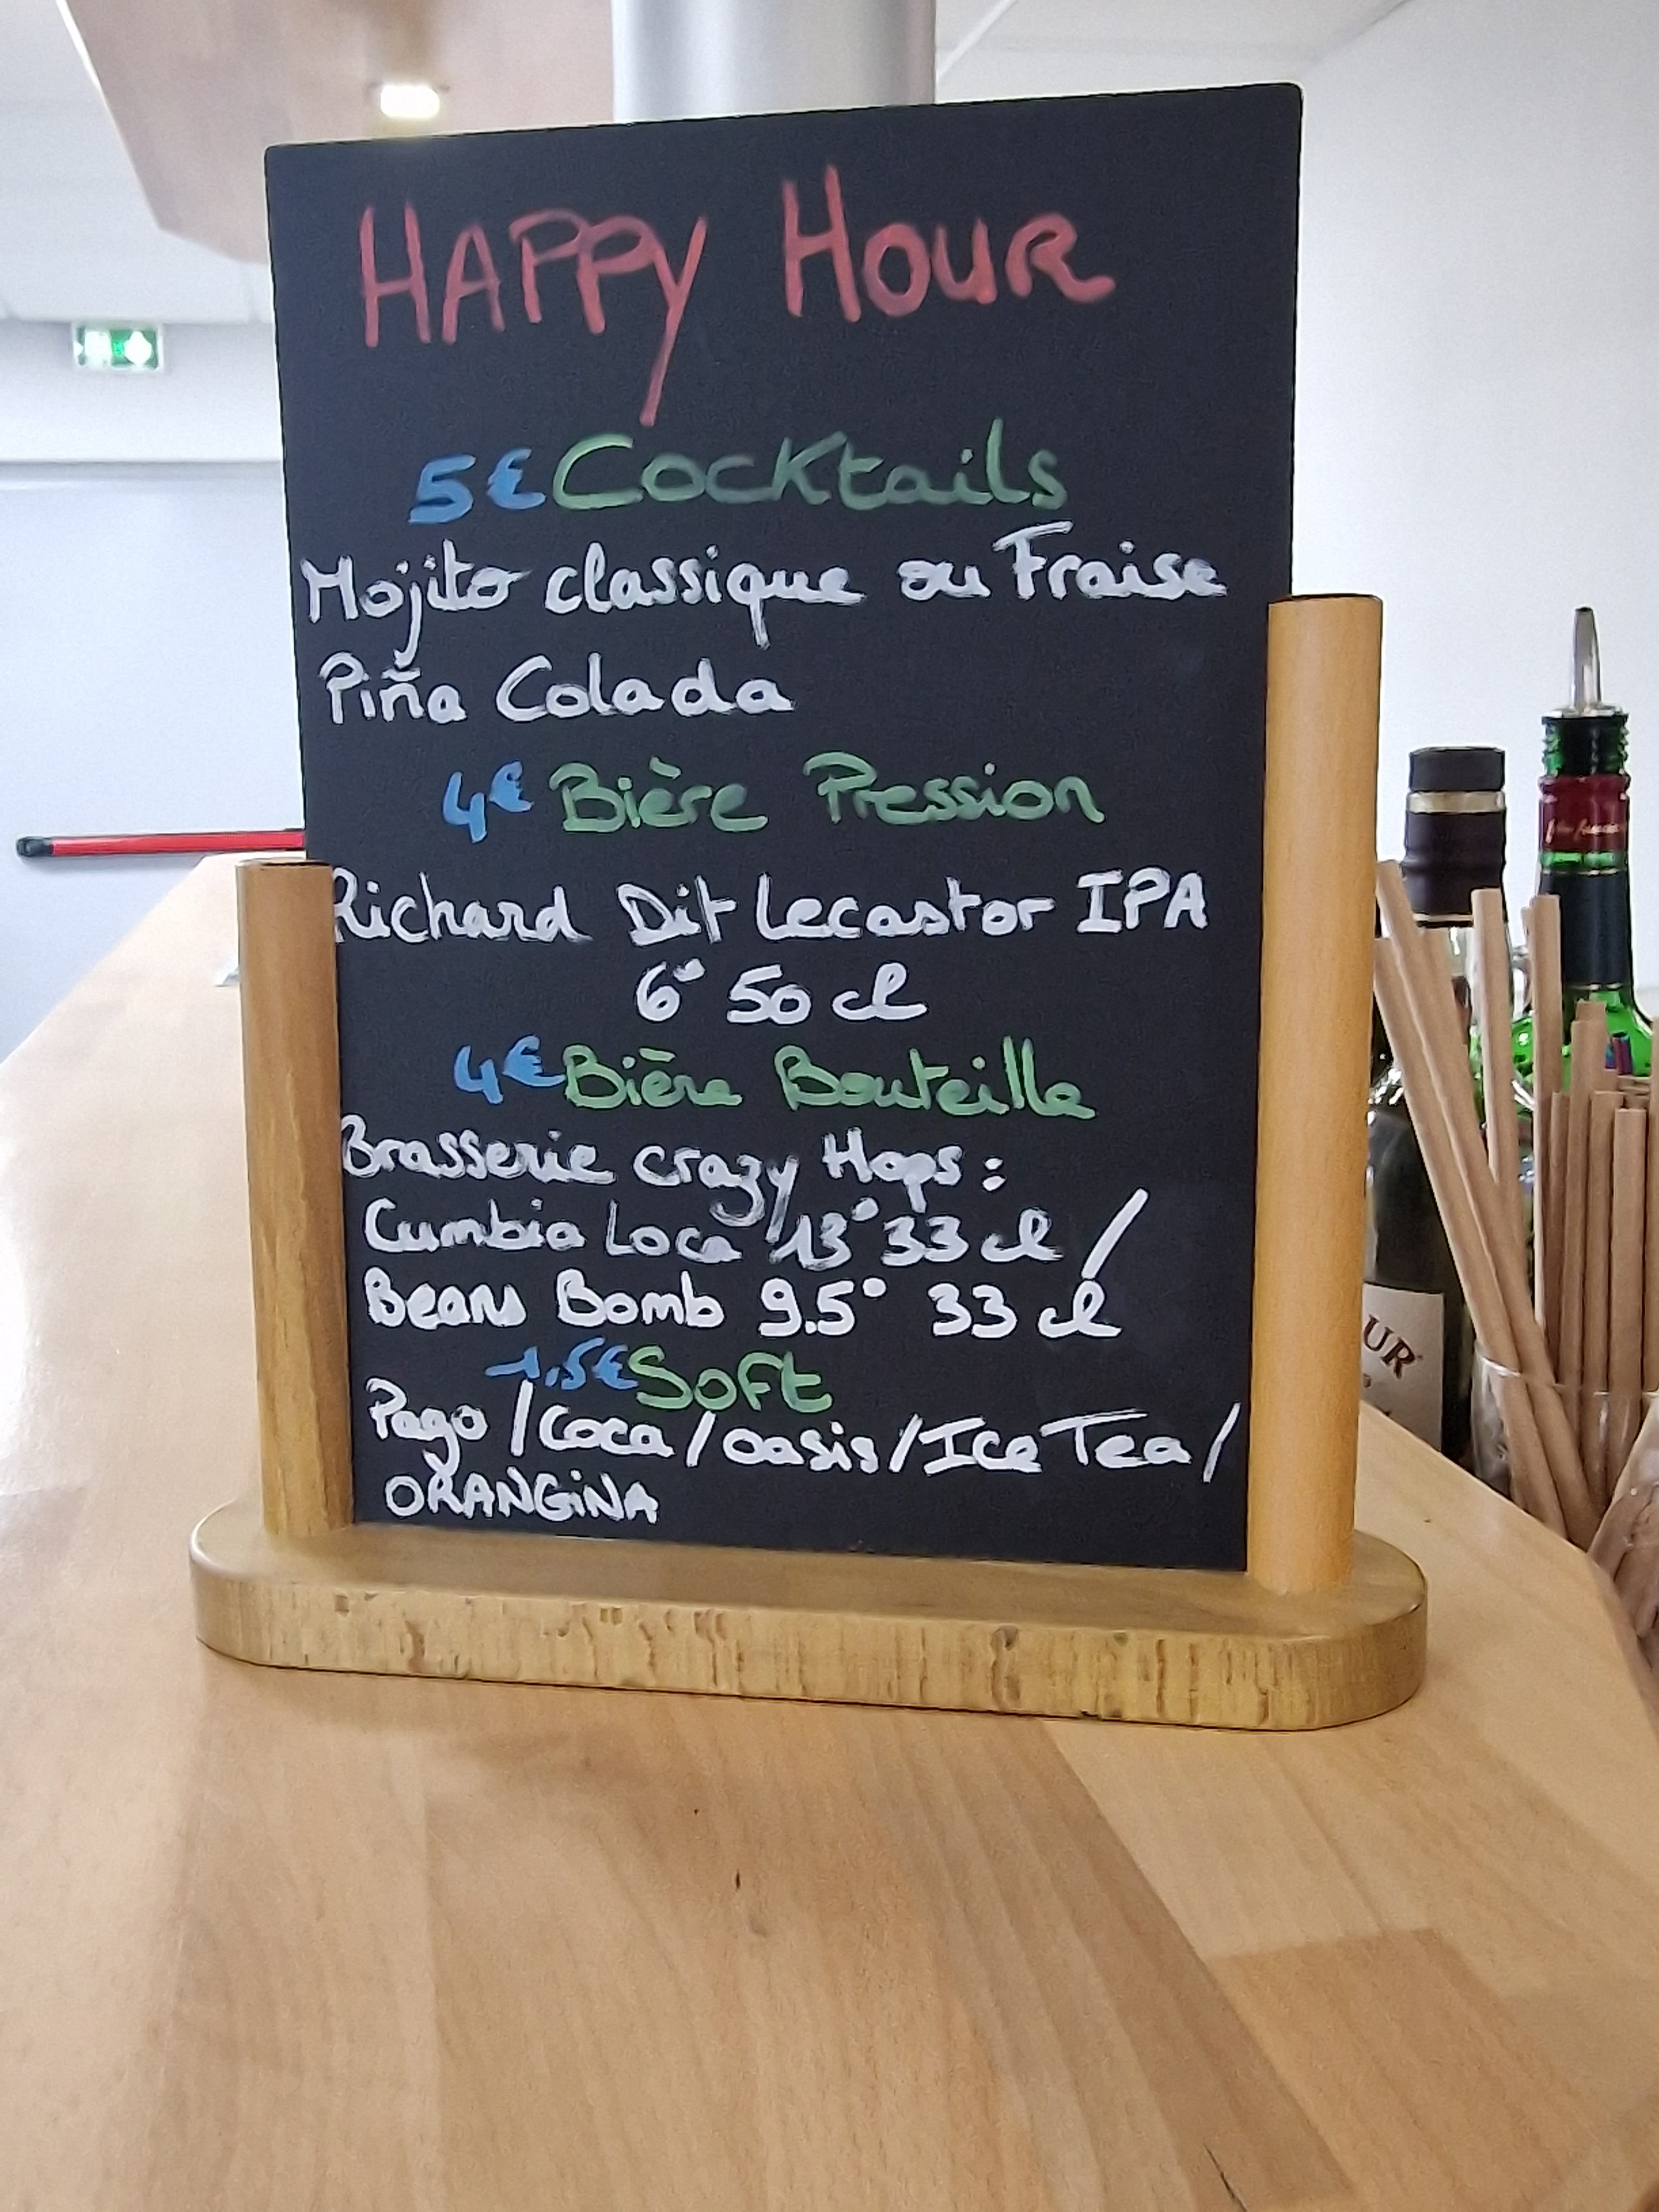 HAPPY HOUR
5€ Cocktails
Mojito classique ou Fraise
Piña Colada
4€ Bière Pression
Richard Dit Lecastor IPA
6° 50 cl
4€ Bière Bouteille
Brasserie crazy Hops :
Cumbia Loca 13° 33 cl /
Beans Bomb 9.5° 33 cl
1.5€ Soft
Pago / Coca / oasis / Ice Tea /
ORANGiNA
UR